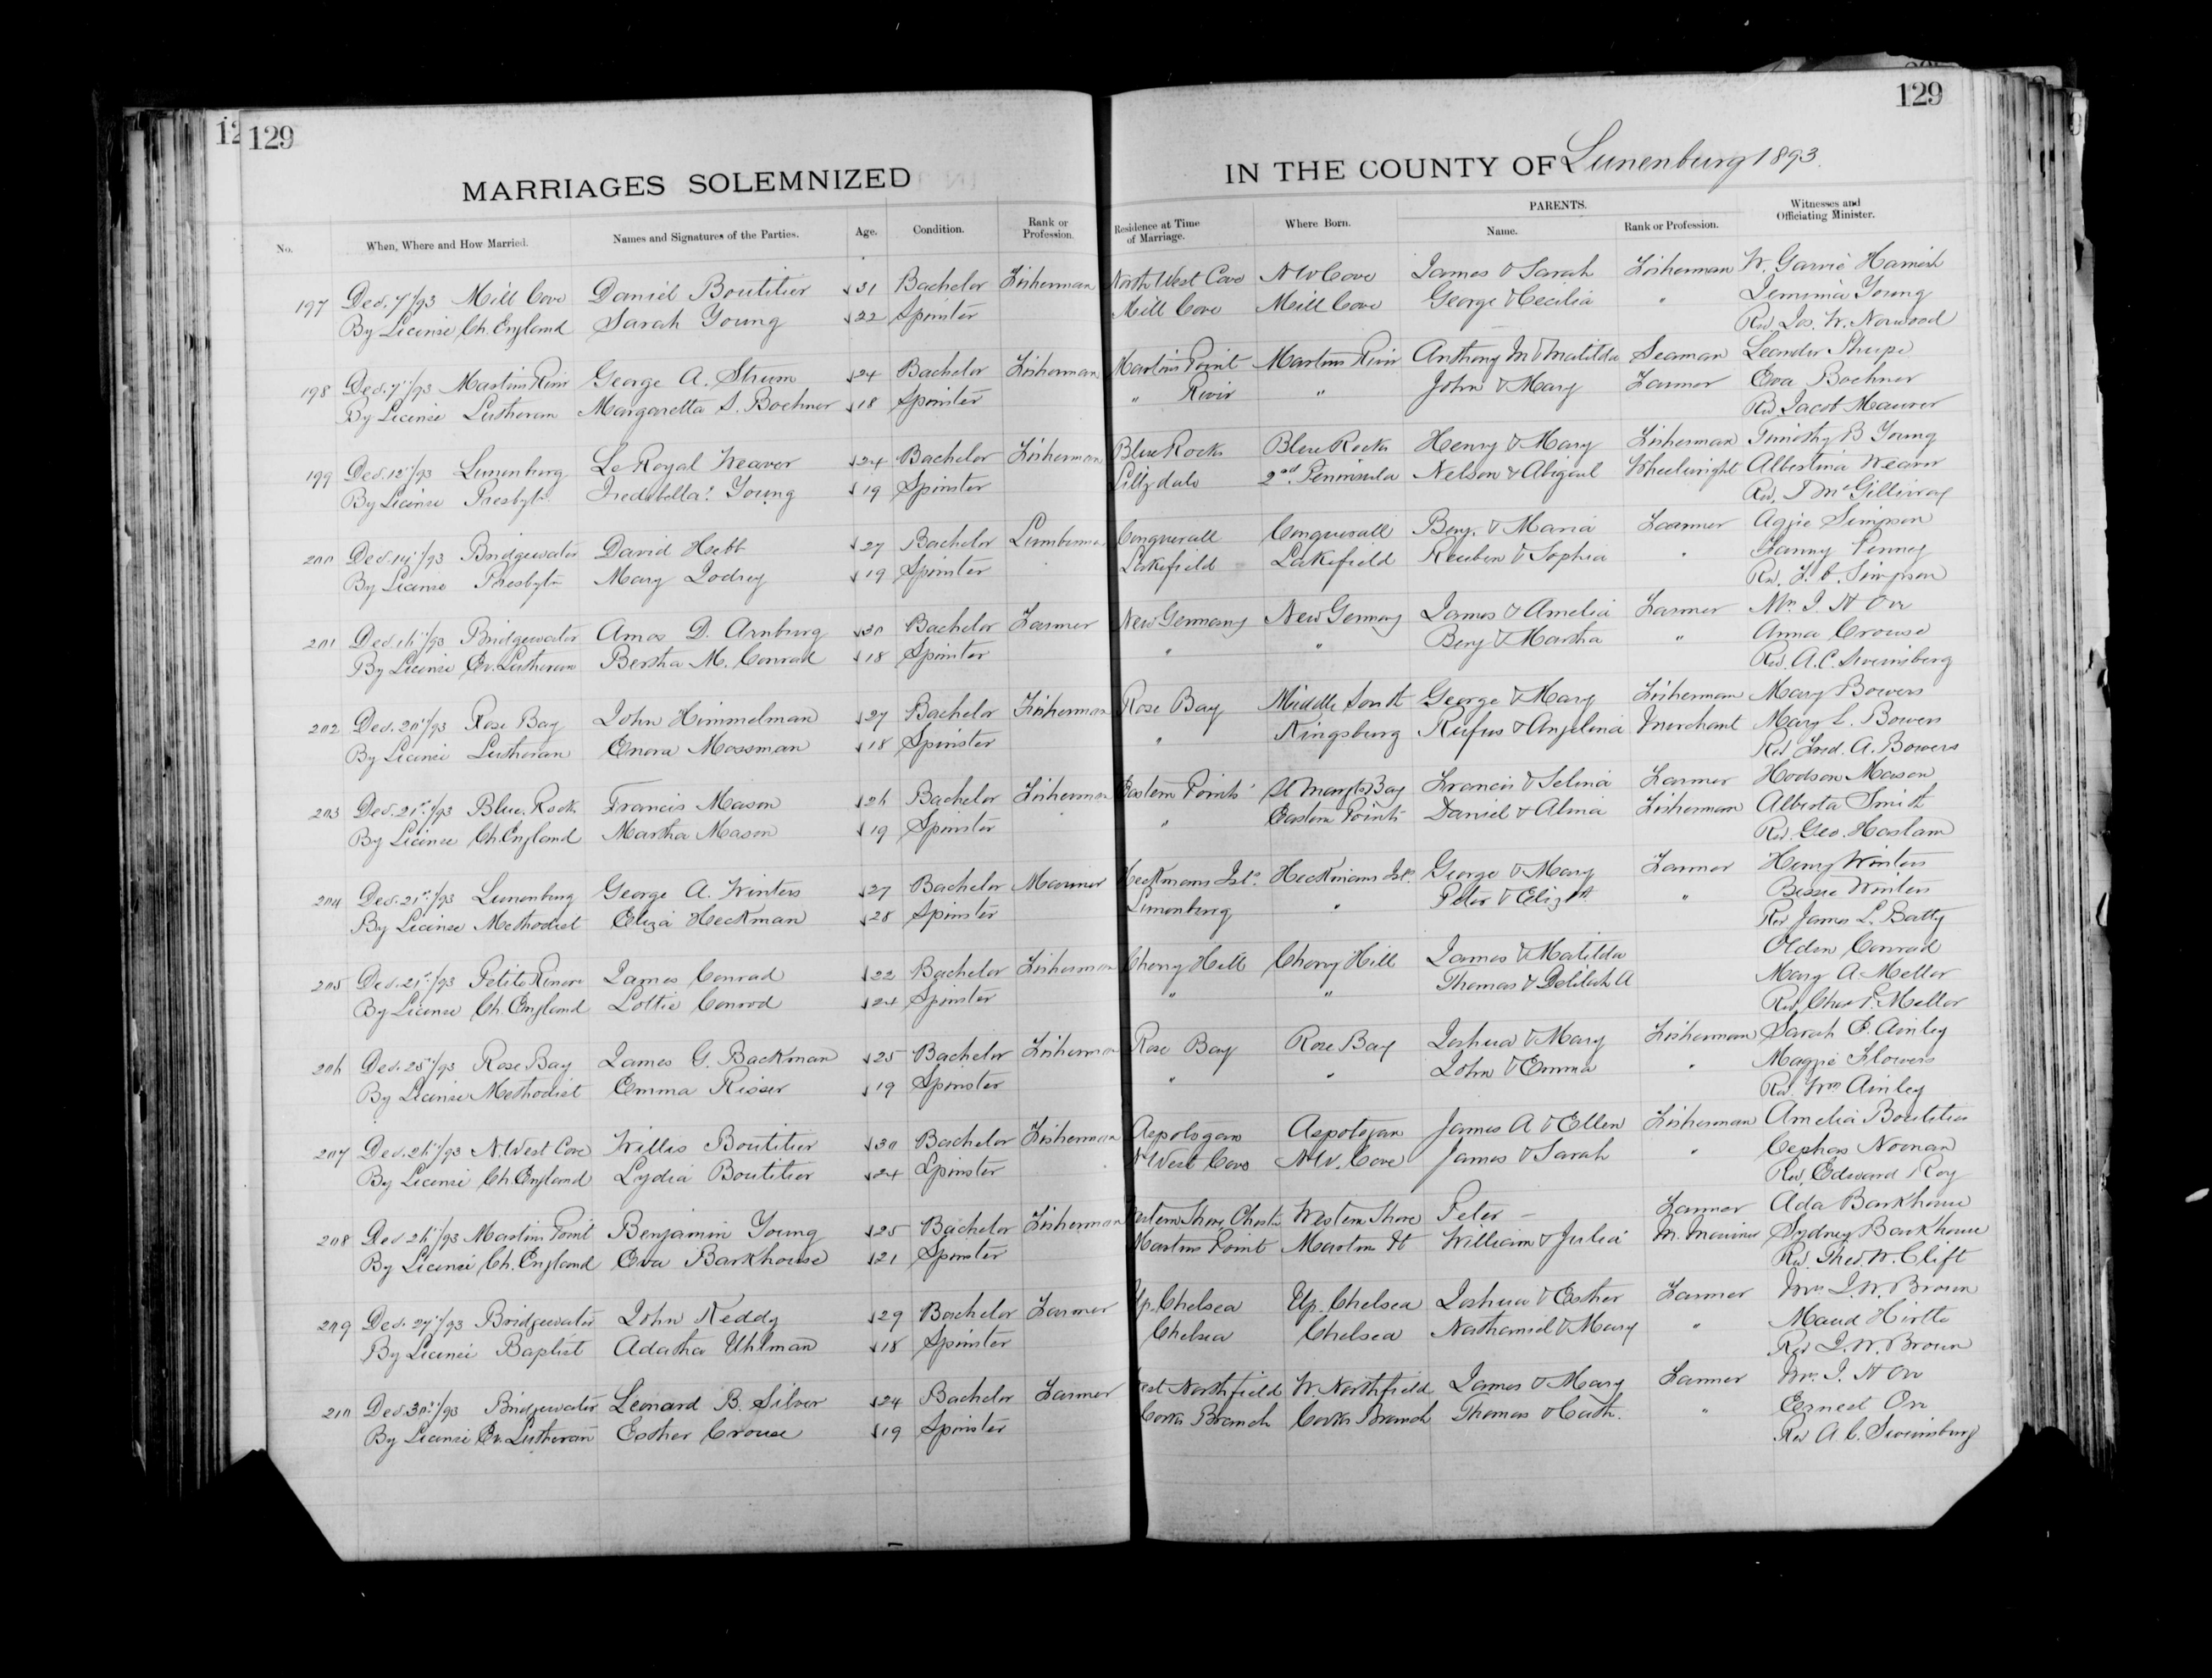 129
129
MARRIAGES SOLEMNIZED IN THE COUNTY OF Lunenburg 1893.
No. When, Where and How Married. Names and Signatures of the Parties. Age. Condition. Rank or Profession. Residence at Time of Marriage. Where Born. PARENTS. Name. Rank or Profession. Witnesses and Officiating Minister.
197 Dec. 7"/93 Mill Cove Daniel Boutilier 31 Bachelor Fisherman North West Cove N W Cove James & Sarah Fisherman W. Garvie Harnish
By License Ch. England Sarah Young 22 Spinster Mill Cove Mill Cove George & Cecilia " Jemima Young
Rev. Jos. W. Norwood
198 Dec. 7"/93 Martins River George A. Strum 24 Bachelor Fisherman Martins Point Martins River Anthony M & Matilda Seaman Leander
By License Lutheran Margaretta S. Boehner 18 Spinster " River " John & Mary Farmer Eva Boehner
Rev. Jacob Maurer
199 Dec. 12"/93 Lunenburg Le Royal Weaver 24 Bachelor Fisherman Blue Rocks Blue Rocks Henry & Mary Fisherman Timothy B Young
By License Presbytn Young 19 Spinster Lillydale 2nd Peninsula Nelson & Abigail Wheelwright Albertina Weaver
Rev. McGillivray
200 Dec. 14"/93 Bridgewater David Hebb 27 Bachelor Lumberman Conquerall Conquerall Benj. & Maria Farmer Aggie Simpson
By License Presbytn Mary Lodrey 19 Spinster Lakefield Lakefield Reuben & Sophia " Fanny Penney
Rev. Simpson
201 Dec. 16"/93 Bridgewater Amos D. Arnburg 30 Bachelor Farmer New Germany New Germany James & Amelia Farmer Mrs. I. H Orr
By License Ev. Lutheran Bertha M. Conrad 18 Spinster " " Benj & Martha " Anna Crouse
Rev. A. C. Swinsberg
202 Dec. 20"/93 Rose Bay John Himmelman 27 Bachelor Fisherman Rose Bay Middle South George & Mary Fisherman Mary Bowers
By License Lutheran Enora Mossman 18 Spinster " Kingsburg Rufus & Angelina Merchant Mary L. Bowers
Rev Fred. A. Bowers
203 Dec. 21st/93 Blue Rock Francis Mason 26 Bachelor Fisherman Eastern Points St Margts Bay Francis & Selina Farmer Hodson Mason
By License Ch. England Martha Mason 19 Spinster " Eastern Points Daniel & Alma Fisherman Alberta Smith
Rev. Geo. Haslam
204 Dec. 21st/93 Lunenburg George A. Winters 27 Bachelor Mariner Heckmans Isld. Heckmans Isld. George & Mary Farmer Henry Winters
By License Methodist Eliza Heckman 28 Spinster Lunenburg " Peter & Elizth " Bessie Winters
Rev James L. Batty
205 Dec. 21st/93 Petite Riviere James Conrad 22 Bachelor Fisherman Cherry Hill Cherry Hill James & Matilda Olden Conrad
By License Ch. England Lottie Conrod 24 Spinster " " Thomas & Delilah A Mary A Mellor
Rev Chas P. Mellor
206 Dec. 25"/93 Rose Bay James G. Backman 25 Bachelor Fisherman Rose Bay Rose Bay Joshua & Mary Fisherman Sarah E. Ainley
By License Methodist Emma Risser 19 Spinster " " John & Emma " Maggie Flowers
Rev. Wm Ainley
207 Dec. 26"/93 N. West Cove Willis Boutilier 30 Bachelor Fisherman Aspotogan Aspotogan James A & Ellen Fisherman Amelia Boutilier
By License Ch. England Lydia Boutilier 24 Spinster N West Cove N W. Cove James & Sarah " Cephas Noonan
Rev. Edward Roy
208 Dec 26"/93 Martins Point Benjamin Young 25 Bachelor Fisherman Western Shore Chester Western Shore Peter — Farmer Ada Barkhouse
By License Ch. England Eva Barkhouse 21 Spinster Martins Point Martins Pt William & Julia M. Mariner Sydney Barkhouse
Rev. Theo. W. Clift
209 Dec. 27"/93 Bridgewater John Keddy 29 Bachelor Farmer Up. Chelsea Up. Chelsea Joshua & Esther Farmer Mrs J. W. Brown
By License Baptist Adatha Uhlman 18 Spinster Chelsea Chelsea Nathaniel & Mary " Maud Hirtle
Rev J. W. Brown
210 Dec. 30"/93 Bridgewater Leonard B. Silver 24 Bachelor Farmer West Northfield W. Northfield James & Mary Farmer Mrs. I. H Orr
By License Ev. Lutheran Esther Crouse 19 Spinster Branch Branch Thomas & Cath. " Ernest Orr
Rev A. C. Swinsburg